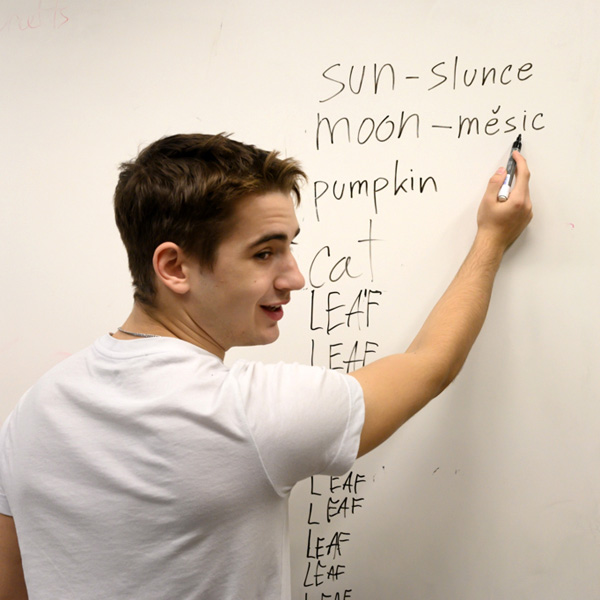 sun - slunce
moon - měsic
pumpkin
cat
LEAF
LEAF
LEAF
LEAF
LEAF
LEAF
LEAF